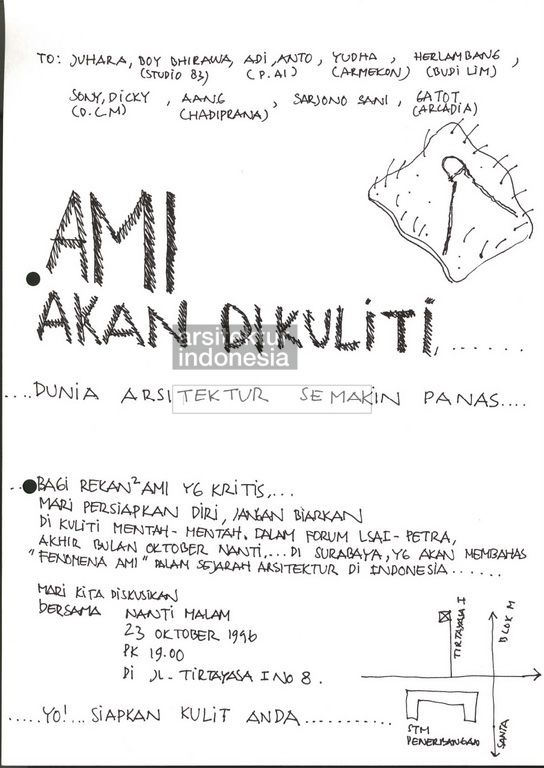 TO: JUHARA, BOY BHIRAWA, ADI, ANTO, YUDHA, HERLAMBANG,
(STUDIO 83) (P.AI) (ARMEKON) (BUDI LIM)
SONY, DICKY, AANG, SARJONO SANI, GATOT
(D.C.M) (HADIPRANA) (ARCADIA)
AMI
AKAN DIKULITI, ......
arsitektur
indonesia
....DUNIA ARSITEKTUR SEMAKIN PANAS....
..BAGI REKAN² AMI YG KRITIS,...
MARI PERSIAPKAN DIRI, JANGAN BIARKAN
DI KULITI MENTAH-MENTAH. DALAM FORUM LSAI-PETRA,
AKHIR BULAN OKTOBER NANTI,... DI SURABAYA, YG AKAN MEMBAHAS
"FENOMENA AMI" DALAM SEJARAH ARSITEKTUR DI INDONESIA......
MARI KITA DISKUSIKAN
BERSAMA NANTI MALAM
23 OKTOBER 1996
PK 19.00
DI JL. TIRTAYASA I NO 8.
TIRTAYASA I
BLOK M
STM
PENERBANGAN
SANTA
.....YO!...SIAPKAN KULIT ANDA..........